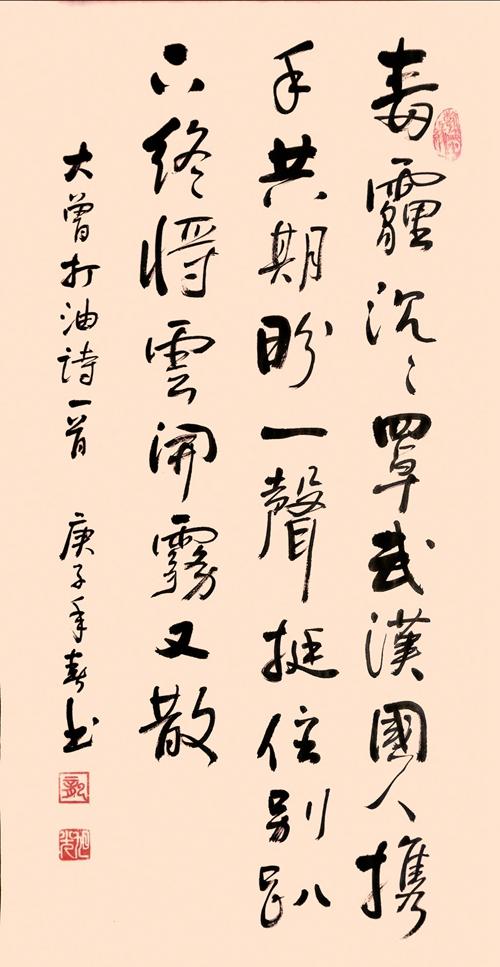 毒霾沉〻罩武漢國人攜
手共期盼一聲挺住别趴
下終將雲開霧又散
大曾打油詩一首 庚子年春书